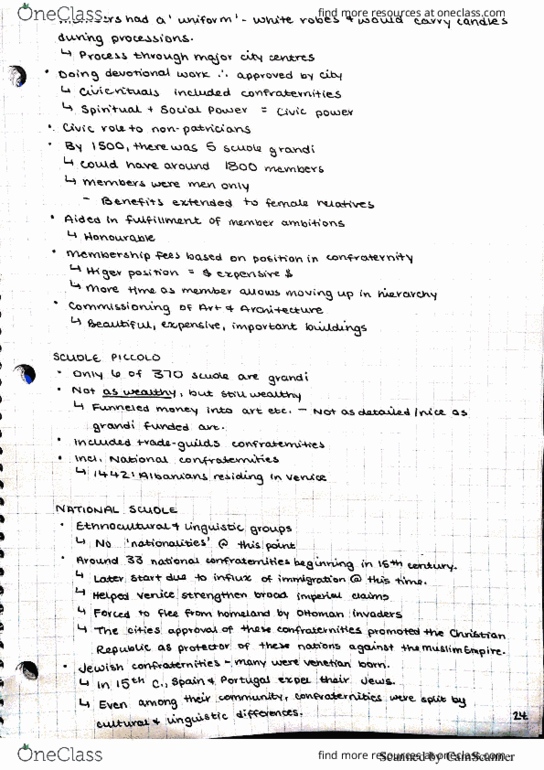 OneClass
find more resources at oneclass.com
had a 'uniform' - white robes & would carry candles
during processions.
↳ Process through major city centres
• Doing devotional work ∴ approved by city
↳ Civic rituals included confraternities
↳ Spiritual + Social Power = Civic power
• Civic role to non-patricians
• By 1500, there was 5 scuole grandi
↳ could have around 1800 members
↳ members were men only
- Benefits extended to female relatives
• Aided in fulfillment of member ambitions
↳ Honourable
• Membership fees based on position in confraternity
↳ Higer position = $ expensive $
↳ More time as member allows moving up in hierarchy
• Commissioning of Art & Architecture
↳ Beautiful, expensive, important buildings
SCUOLE PICCOLO
• Only 6 of 370 scuole are grandi
• Not as wealthy, but still wealthy
↳ Funneled money into art etc. - Not as detailed/nice as
grandi funded art.
• Included trade-guilds confraternities
• Incl. National confraternities
↳ 1442: Albanians residing in Venice
NATIONAL SCUOLE
• Ethnocultural & linguistic groups
↳ No 'nationalities' @ this point
• Around 33 national confraternities beginning in 15th century.
↳ Later start due to influx of immigration @ this time.
↳ Helped Venice strengthen broad imperial claims
↳ Forced to flee from homeland by Ottoman invaders
↳ The cities approval of these confraternities promoted the Christian
Republic as protector of these nations against the muslim Empire.
• Jewish confraternities - many were venetian born.
↳ In 15th C., Spain & Portugal expel their Jews.
↳ Even among their community, confraternities were split by
cultural & linguistic differences.
24
OneClass
find more resources at oneclass.com
Scanned by CamScanner